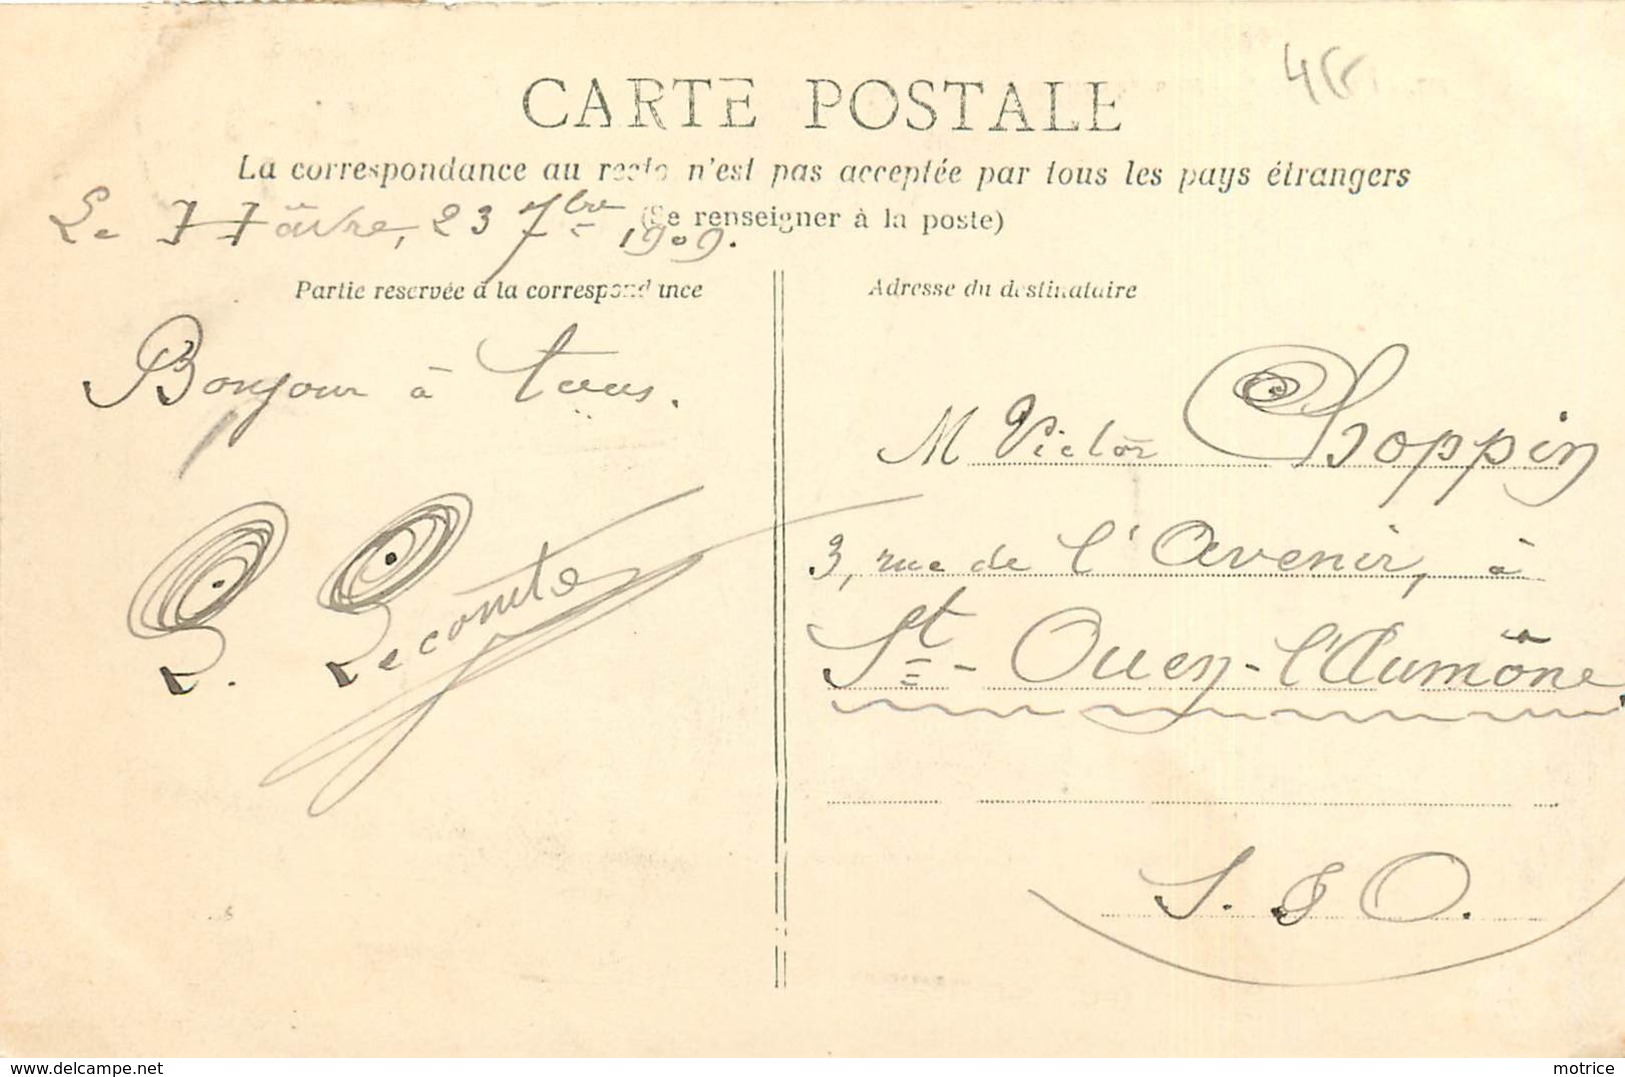 CARTE POSTALE
La correspondance au recto n'est pas acceptée par tous les pays étrangers
(Se renseigner à la poste)
Le Hâvre, 23 7bre 1909.
Partie reservée à la correspondance
Bonjour à tous.
L. Lecomte
Adresse du destinataire
M Victor Choppin
3, rue de l'Avenir, à
St-Ouen-l'Aumône.
S. & O.
delcampe.net
motrice